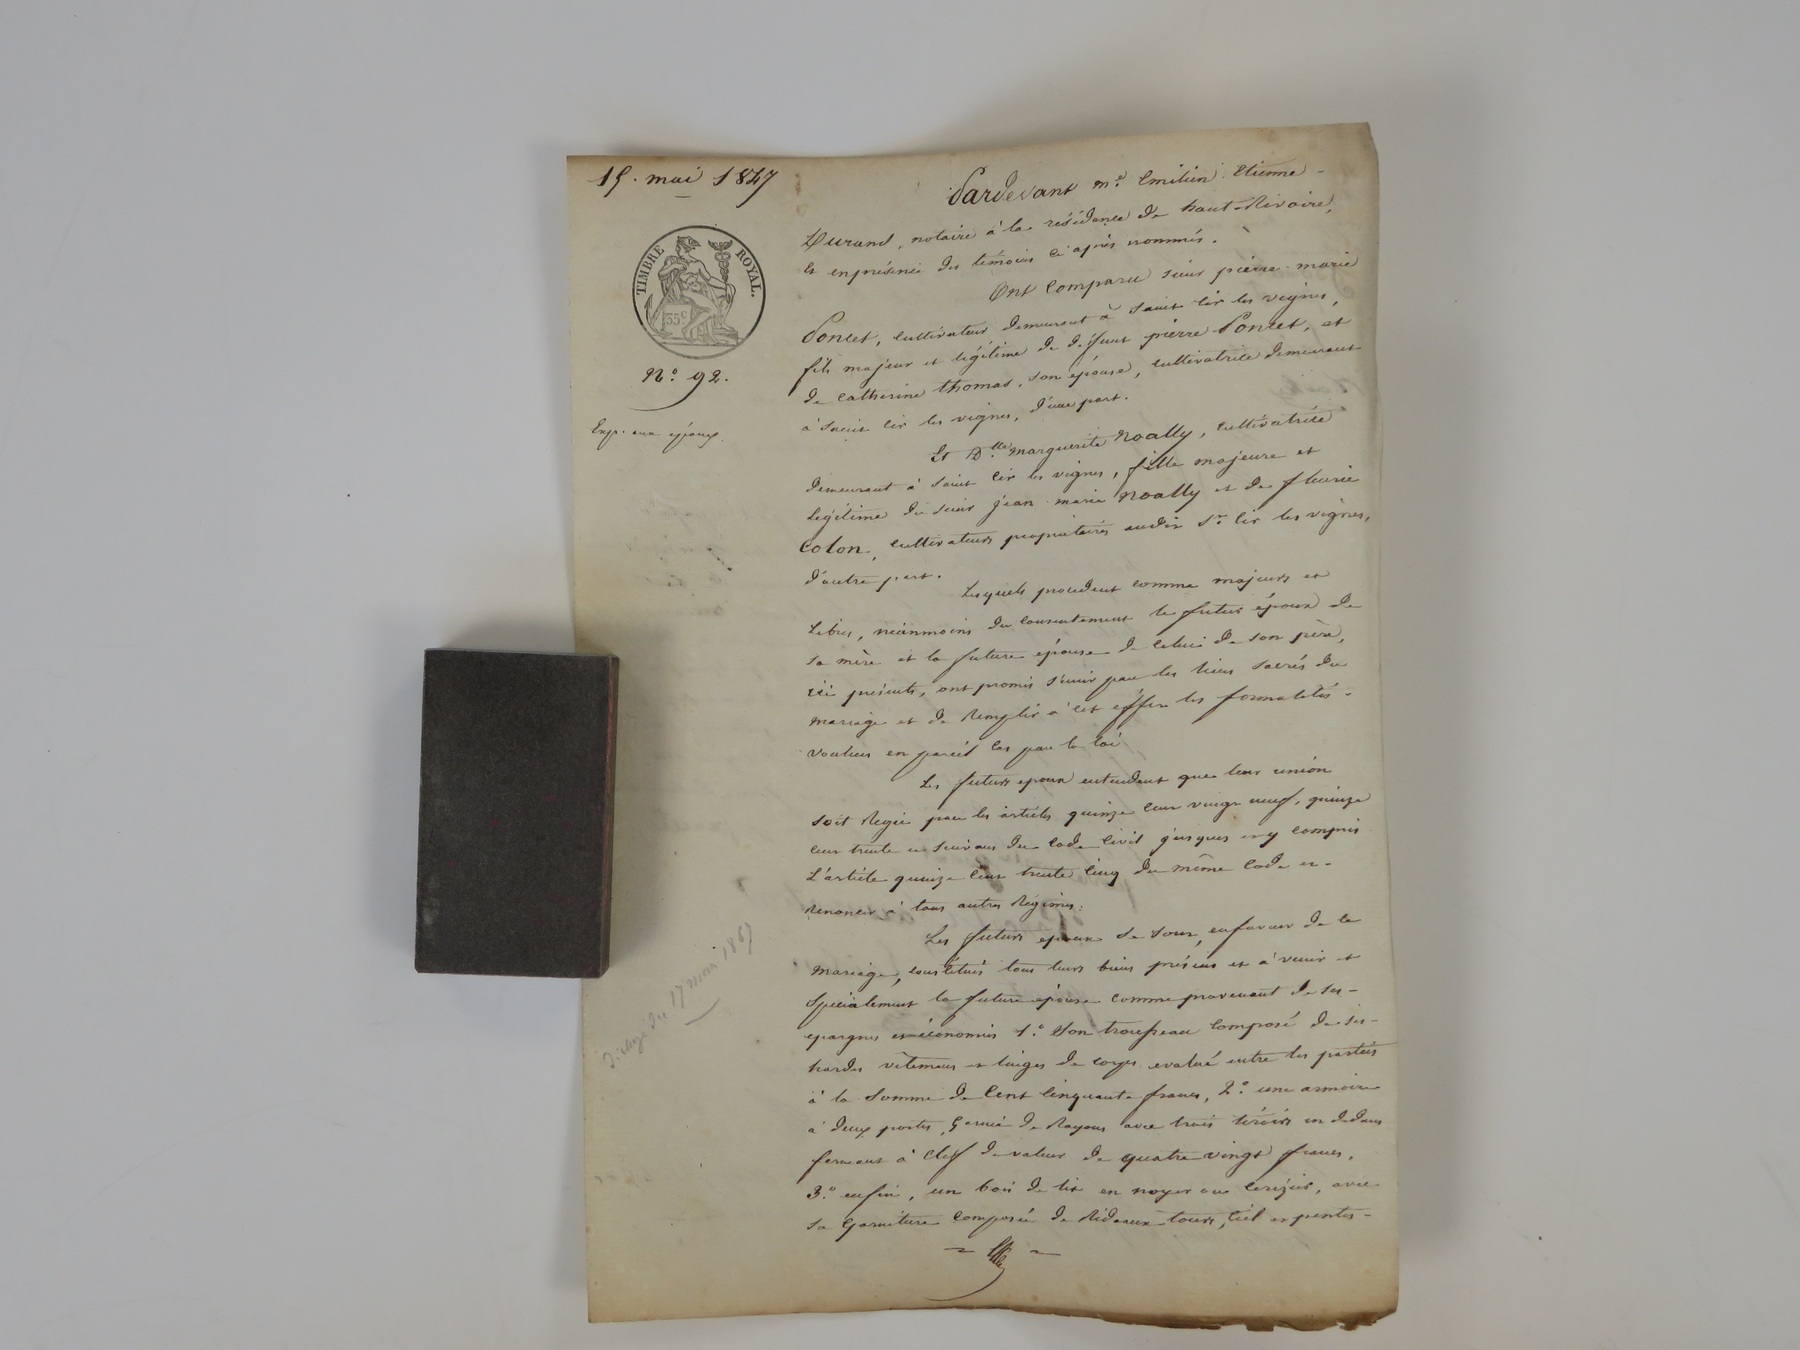 15. mai 1847
TIMBRE ROYAL.
35c
No. 92.
Exp. aux époux.
Pardevant me. Emilien Etienne
Durand, notaire à la résidance de haut-Rivoire,
et enprésence des témoins ci après nommés.
Ont Comparu sieur pierre marie
Poncet, cultivateur demeurant à Saint Cir les vignes,
fils majeur et légitime de défunt pierre Poncet, et
de Catherine Thomas, son épouse, cultivatrice demeurant
à Saint Cir les vignes, d'une part.
Et Dlle. marguerite Noally, cultivatrice
demeurant à Saint Cir les vignes, fille majeure et
légitime du sieur jean marie Noally et de fleurie
Colon, cultivateurs propriétaires audit St. Cir les vignes,
d'autre part.
Lesquels procedent comme majeurs et
Libres, néanmoins du consentement le futur époux de
sa mère et la future épouse de celui de son père,
ici présents, ont promis s'unir par les liens sacrés du
mariage et de Remplir à cet effet les formalités
voulues en pareil cas par la loi
Les futurs epoux entendent que leur union
soit Régie par les articles quinze cent vingt neuf, quinze
cent trente et suivans du Code Civil jusques et y compris
L'article quinze cent trente cinq du même Code et
Renoncer à tous autres Régimes.
Les futurs epoux se sont, enfaveur de ce
mariage, constitués tous leurs biens présens et à venir et
Spécialement la future épouse comme provenant de ses
epargnes et économies 1.o Son trousseau Composé de ses
hardes vêtemens et linges de corps evalué entre les parties
à la Somme de Cent Cinquante francs, 2.o une armoire
à deux portes, Garnie de Rayons avec trois tiroirs en dedans
fermant à Clef de valeur de quatre vingt francs,
3.o enfin, un bois de lit en noyer ou Cerizier, avec
sa Garniture Composée de Rideaux tours, Ciel et pentes
du 17 mai 1867